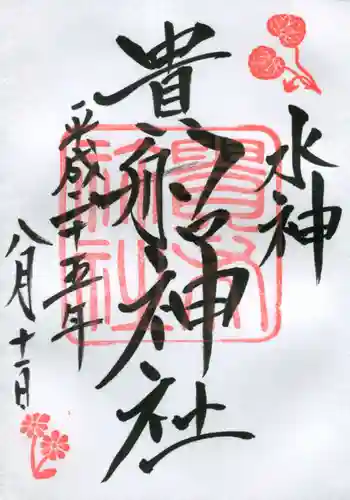 水神
貴船神社
平成二十五年
八月十一日